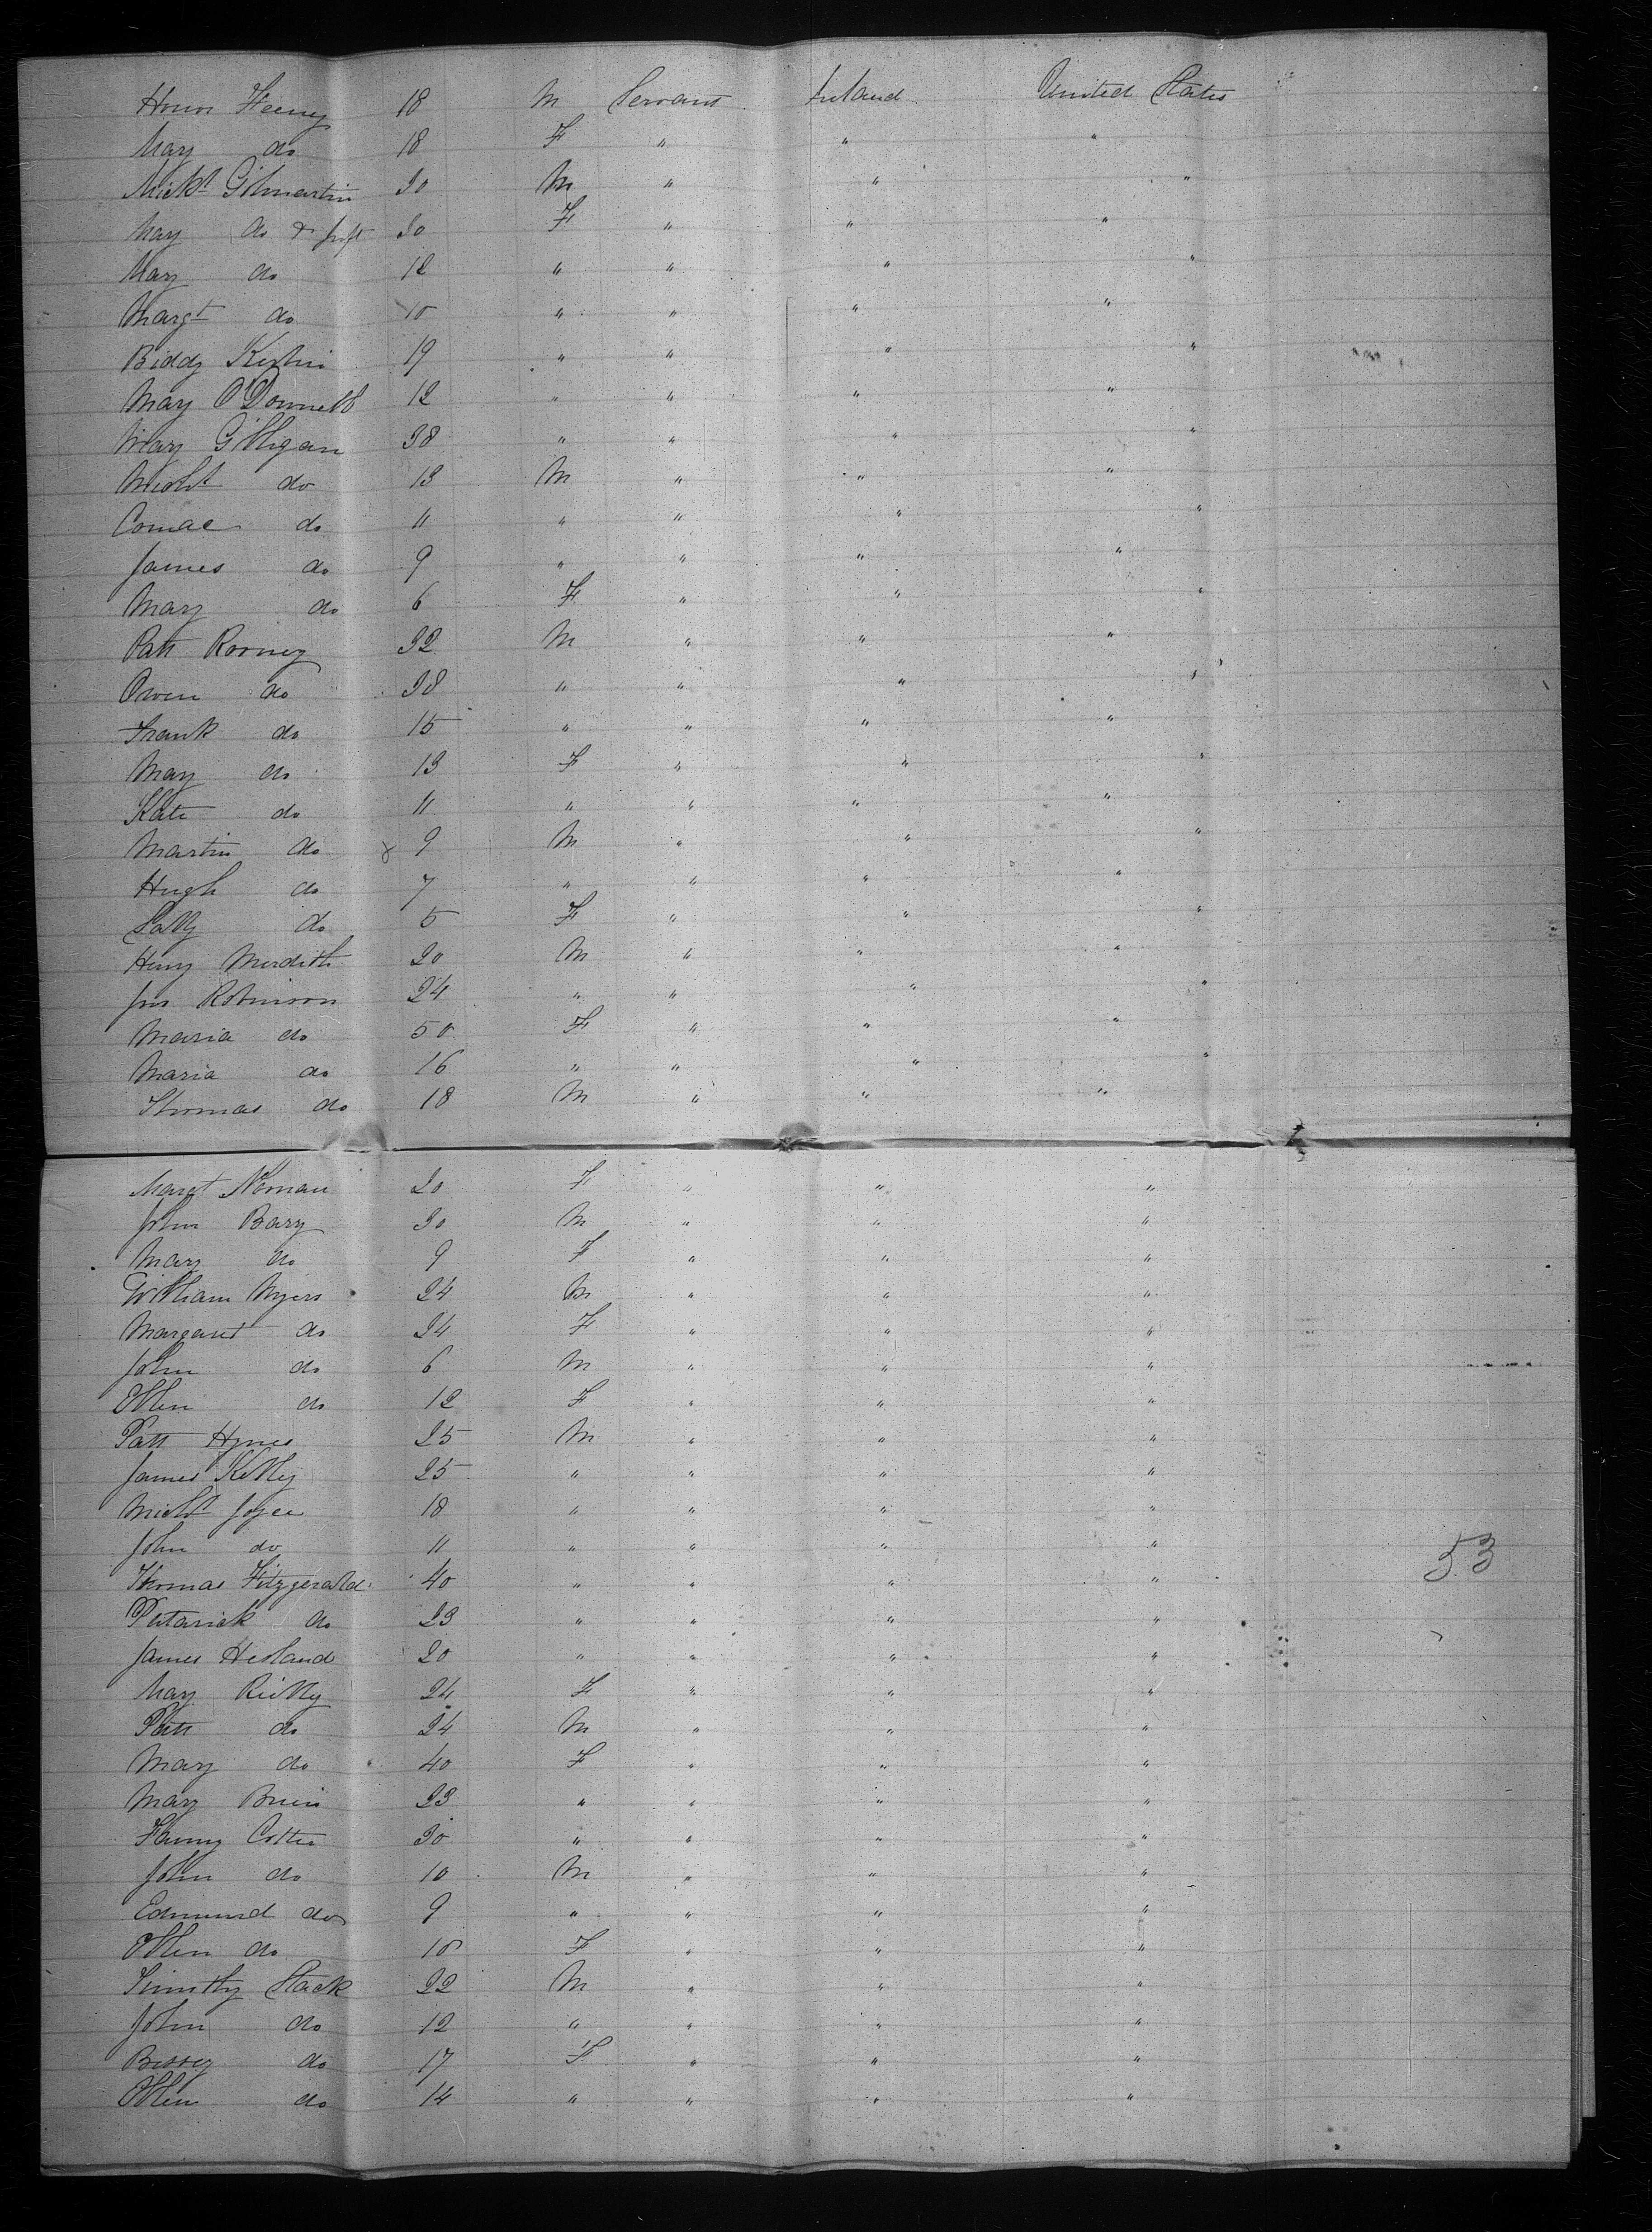 Honor Feeny 18 M Servant Ireland United States
Mary do 18 F " " "
Michl Gilmartin 30 M " " "
Mary do & Inft 30 F " " "
Mary do 12 " " " "
Margt do 10 " " " "
Biddy 19 " " " "
Mary O'Donnell 12 " " " "
Mary Gilligan 38 " " " "
Michl do 13 M " " "
Comac do 11 " " " "
James do 9 " " " "
Mary do 6 F " " "
Patt Rooney 32 M " " "
Owen do 38 " " " "
Frank do 15 " " " "
Mary do 13 F " " "
Kate do 11 " " " "
Martin do 9 M " " "
Hugh do 7 " " " "
Sally do 5 F " " "
Henry Merdith 20 M " " "
Jno Robinson 24 " " " "
Maria do 50 F " " "
Maria do 16 " " " "
Thomas do 18 M " " "
Margt Noman 20 F " " "
John Barry 30 M " " "
Mary do 9 F " " "
William Myers 24 M " " "
Margaret do 24 F " " "
John do 6 M " " "
Ellen do 12 F " " "
Patt Hynes 25 M " " "
James Kelly 25 " " " "
Michl Joyce 18 " " " "
John do 11 " " " "
53
Thomas Fitzgerald 40 " " " "
Patarick do 23 " " " "
James Hesland 20 " " " "
Mary Rielly 24 F " " "
Patt do 24 M " " "
Mary do 40 F " " "
Mary 23 " " " "
Fanny Cotter 30 " " " "
John do 10 M " " "
Edmund do 9 " " " "
Ellen do 10 F " " "
Timothy Stack 22 M " " "
John do 12 " " " "
Bessey do 17 F " " "
Ellen do 14 " " " "